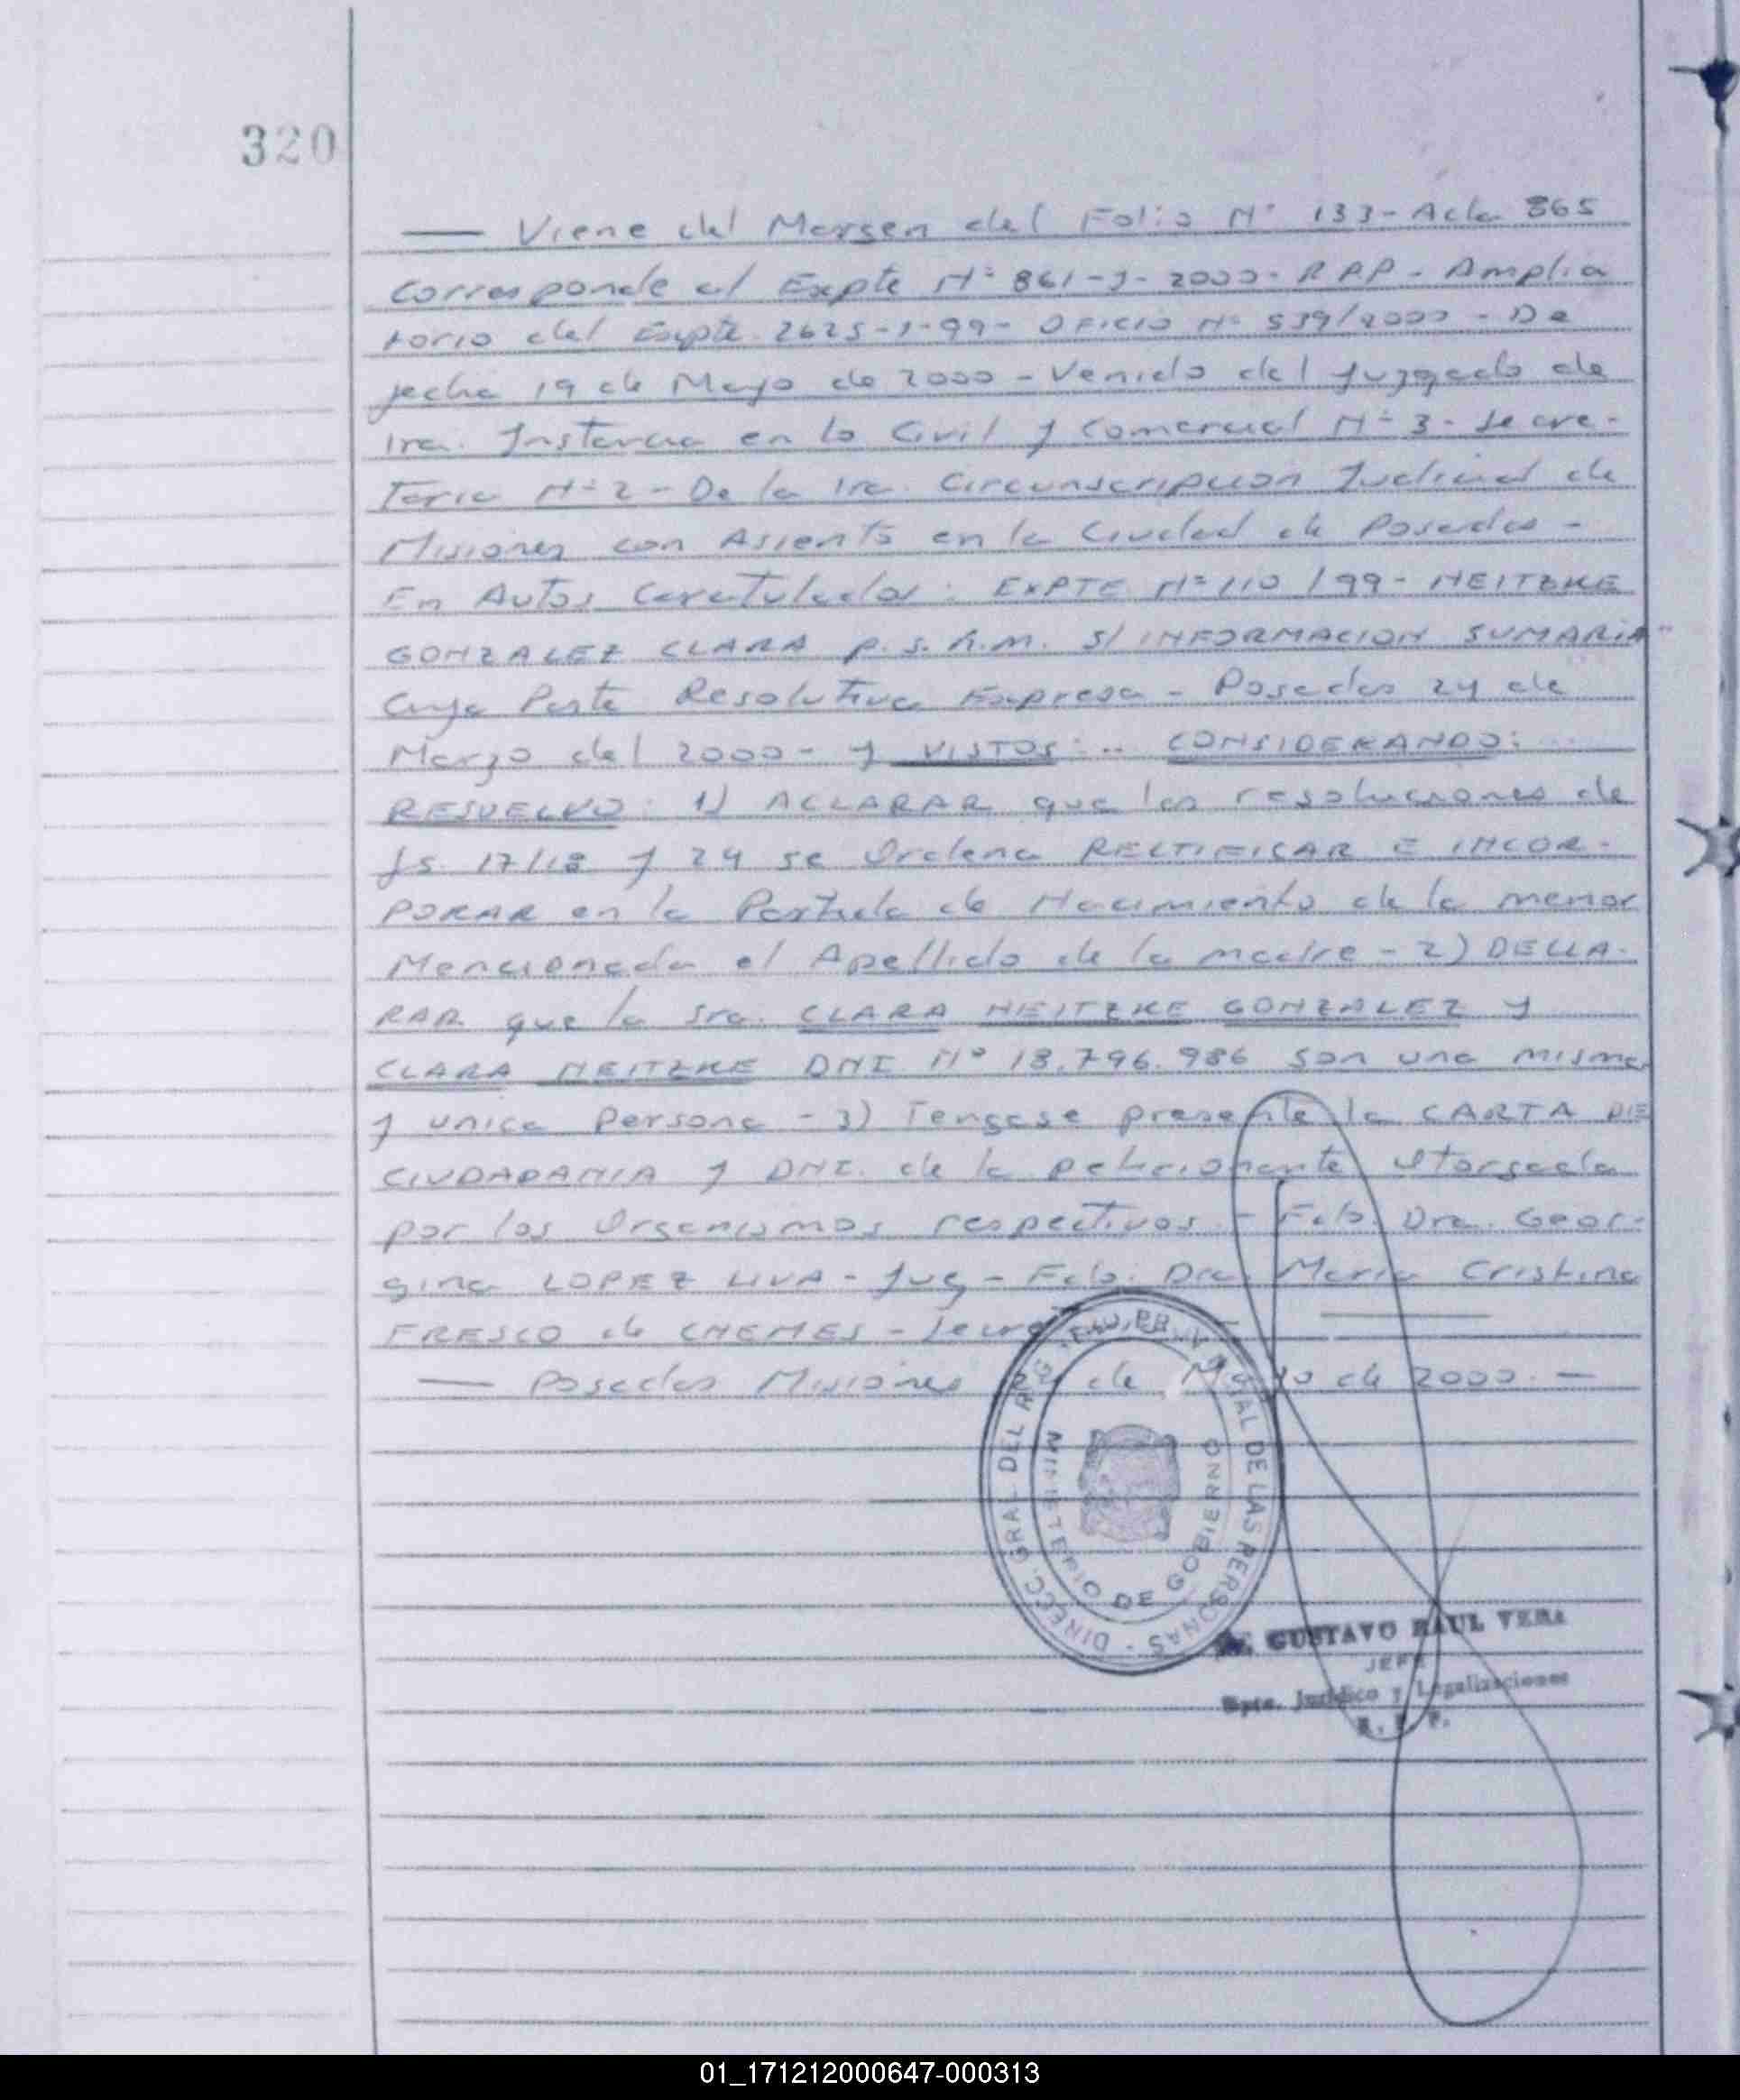 320
— Viene del Margen del Folio Nº 133 - Acta 865
Corresponde al Expte Nº 861-J-2000- RPP - Amplia
torio del Expte 2625-J-99- OFICIO Nº 539/2000 - De
fecha 19 de Mayo de 2000 - Venido del Juzgado de
1ra. Instancia en lo Civil y Comercial Nº 3 - Secre-
taria Nº 2 - De la 1ra. Circunscripcion Judicial de
Misiones con Asiento en la Ciudad de Posadas -
En Autos Caratulados: EXPTE Nº 110/99 - HEITZKE
GONZALEZ CLARA p. s. h.m. S/ INFORMACION SUMARIA"
Cuya Parte Resolutiva Expresa - Posadas 24 de
Marzo del 2000 - y VISTOS:.. CONSIDERANDO:
RESUELVO: 1) ACLARAR que las resoluciones de
fs. 17/18 y 24 se Ordena RECTIFICAR E INCOR-
PORAR en la Partida de Nacimiento de la menor
Mencionada el Apellido de la madre - 2) DECLA-
RAR que la Sra. CLARA HEITZKE GONZALEZ y
CLARA HEITZKE DNI Nº 18.796.986 son una misma
y unica Persona - 3) Tengase presente la CARTA DE
CIUDADANIA y DNI. de la peticionante Otorgada
por los Organismos respectivos. - Fdo. Dra. Geor-
gina LOPEZ LIVA - Juez - Fdo. Dra. Maria Cristina
FRESCO de CHEMES - Secret
— Posadas Misiones de Mayo de 2000. —
DIRECC. GRAL DEL REG. DE LAS PERSONAS
MINISTERIO DE GOBIERNO
GUSTAVO RAUL VERA
JEFE
Dpto. Jurídico y Legalizaciones
R. P. P.
01_171212000647-000313